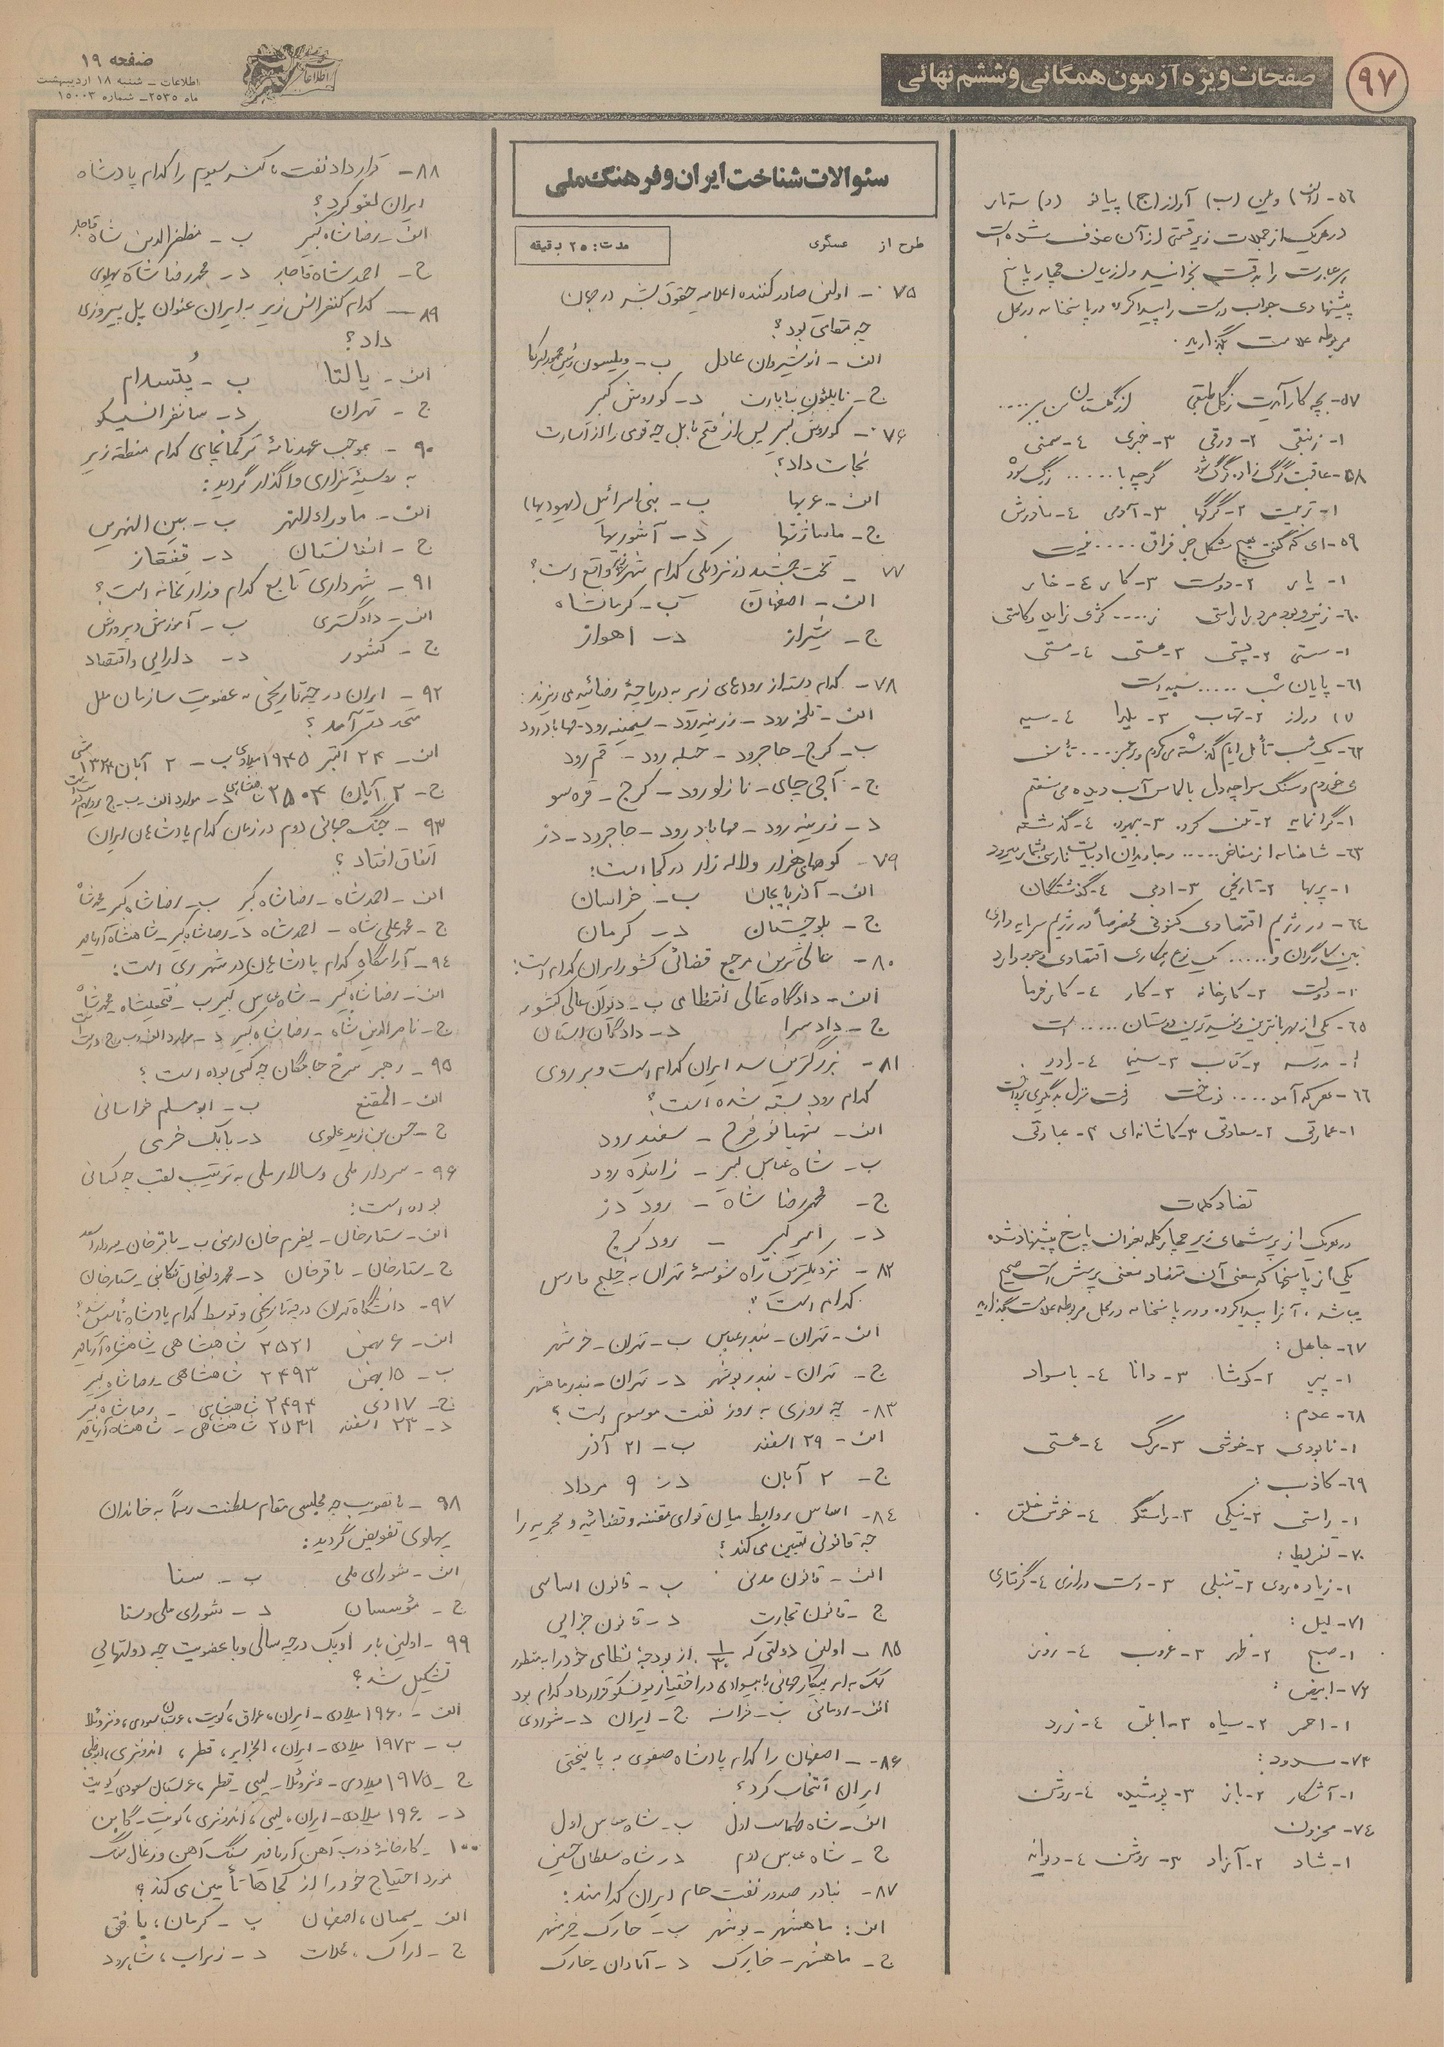 ۹۷
صفحات ویژه آزمون همگانی و ششم نهائی
صفحه ۱۹
اطلاعات ـ شنبه ۱۸ اردیبهشت
ماه ۲۵۳۵ـ شماره ۱۵۰۰۳
۵۶- الف) وطن (ب) آواز (ج) پیانو (د) سه‌تار
در هریک از جملات زیر قسمتی از آن حذف شده است
هر عبارت را بدقت بخوانید و از میان چهار پاسخ
پیشنهادی جواب درست را پیدا کرده در پاسخنامه در محل
مربوطه علامت بگذارید .
۵۷- بچه کار آیدت زگل طبقی از گلستان من ببر ....
۱- زنبقی ۲- ورقی ۳- خبری ۴- سمنی
۵۸- عاقبت گرگ زاده گرگ شود گرچه با ..... بزرگ شود
۱- تربیت ۲- گرگها ۳- آدمی ۴- مادرش
۵۹- ای که گفتی هیچ مشکل چو فراق .... نیست
۱- یار ۲- دوست ۳- کار ۴- خار
۱- سستی ۲- پستی ۳- هستی ۴- مستی
۶۱- پایان شب ..... سپید است
۱) دراز ۲- مهتاب ۳- یلدا ۴- سیه
۶۲- یک شب تأمل ایام گذشته می‌کردم و بر عمر .... تأسف
می‌خوردم و سنگ سراچه دل بالماس آب دیده می‌سفتم
۱- گرانمایه ۲- تلف کرده ۳- بیهوده ۴- گذشته
۶۳- شاهنامه از مفاخر ..... و جاویدان ادبیات فارسی بشمار میرود
۱- پربها ۲- تاریخی ۳- ادبی ۴- گذشتگان
۶۴- در رژیم اقتصادی کنونی مخصوصاً در رژیم سرمایه داری
بین کارگران و ..... یک نوع همکاری اقتصادی وجود دارد
۱- دولت ۲- کارخانه ۳- کار ۴- کارفرما
۶۵- یکی از مهربانترین و مفیدترین دوستان ..... است
۱- مدرسه ۲- کتاب ۳- سینما ۴- رادیو
۶۶- هر که آمد .... نو ساخت رفت و منزل به دیگری پرداخت
۱- عمارتی ۲- سعادتی ۳- کاشانه‌ای ۴- عبارتی
تضاد کلمات
در هریک از پرسشهای زیر چهار کلمه بعنوان پاسخ پیشنهاد شده
یکی از پاسخها که معنی آن متضاد معنی پرسش است صحیح
میباشد . آنرا پیدا کرده و در پاسخنامه در محل مربوطه علامت بگذارید
۶۷- جاهل :
۱- پیر ۲- کوشا ۳- دانا ۴- باسواد
۶۸- عدم :
۱- نابودی ۲- خوشی ۳- مرگ ۴- هستی
۶۹- کاذب :
۱- راستی ۲- نیکی ۳- راستگو ۴- خوش خلق
۷۰- تفریط :
۱- زیاده روی ۲- تنبلی ۳- دست درازی ۴- گرفتاری
۷۱- لیل :
۱- صبح ۲- ظهر ۳- غروب ۴- روز
۷۲- ابیض :
۱- احمر ۲- سیاه ۳- ابلق ۴- زرد
۷۳- مسدود :
۱- آشکار ۲- باز ۳- پوشیده ۴- روشن
۷۴- محزون
۱- شاد ۲- آزاد ۳- روشن ۴- دیوانه
سئوالات شناخت ایران و فرهنگ ملی
طرح از عسگری
مدت: ۲۵ دقیقه
۷۵- اولین صادر کننده اعلامیه حقوق بشر در جهان
چه مقامی بود ؟
الف- انوشیروان عادل ب- ویلسون رئیس جمهور امریکا
ج- ناپلئون بناپارت د- کوروش کبیر
۷۶- کوروش کبیر پس از فتح بابل چه قومی را از اسارت
نجات داد ؟
الف- عربها ب- بنی اسرائیل (یهودیها)
ج- ماساژتها د- آشوریها
۷۷ - تخت جمشید در نزدیکی کدام شهر واقع است ؟
الف- اصفهان ب- کرمانشاه
ج- شیراز د- اهواز
۷۸- کدام دسته از رودهای زیر به دریاچهٔ رضائیه می‌ریزند :
الف- تلخه رود - زرینه رود - سیمینه رود - مهاباد رود
ب- کرج - جاجرود - حبله رود - قم رود
ج- آجی چای - نازلو رود - کرج - قره سو
د- زرینه رود - مهاباد رود - جاجرود - دز
۷۹- کوههای هزار و لاله زار در کجا است :
الف- آذربایجان ب- خراسان
ج- بلوچستان د- کرمان
۸۰- عالی ترین مرجع قضائی کشور ایران کدام است :
الف- دادگاه عالی انتظامی ب- دیوان عالی کشور
ج- دادسرا د- دادگاه استان
۸۱- بزرگترین سد ایران کدام است و بر روی
کدام رود بسته شده است ؟
الف- شهبانو فرح - سفید رود
ب- شاه عباس کبیر - زاینده رود
ج- محمد رضا شاه - رود دز
د- امیر کبیر - رود کرج
۸۲- نزدیکترین راه شوسهٔ تهران به خلیج فارس
کدام است ؟
الف- تهران - بندرعباس ب- تهران - خرمشهر
ج- تهران - بندر بوشهر د- تهران - بندر ماهشهر
۸۳- چه روزی به روز نفت موسوم است ؟
الف- ۲۹ اسفند ب- ۲۱ آذر
ج- ۲ آبان د- ۹ مرداد
۸۴- اساس روابط میان قوای مقننه و قضائیه و مجریه را
چه قانونی تعیین می‌کند ؟
الف- قانون مدنی ب- قانون اساسی
ج- قانون تجارت د- قانون جزایی
۸۵- اولین دولتی که ۱/۳۰ از بودجهٔ نظامی خود را به منظور
کمک به امر پیکار جهانی با بیسوادی در اختیار یونسکو قرار داد کدام بود
الف- رومانی ب- فرانسه ج- ایران د- شوروی
۸۶- اصفهان را کدام پادشاه صفوی به پایتختی
ایران انتخاب کرد ؟
الف- شاه طهماسب اول ب- شاه عباس اول
ج- شاه عباس دوم د- شاه سلطان حسین
۸۷- بنادر صدور نفت خام ایران کدامند :
الف: ماهشهر - بوشهر ب- خارک خرمشهر
ج- ماهشهر - خارک د- آبادان - خارک
۸۸- قرارداد نفت با کنسرسیوم را کدام پادشاه
ایران لغو کرد ؟
الف- رضا شاه کبیر ب- مظفرالدین شاه قاجار
ج- احمد شاه قاجار د- محمد رضا شاه پهلوی
۸۹- کدام کنفرانس زیر به ایران عنوان پل پیروزی
داد ؟
الف- یالتا ب- پُتسدام
ج- تهران د- سانفرانسیسکو
۹۰- بموجب عهدنامهٔ ترکمانچای کدام منطقه زیر
به روسیهٔ تزاری واگذار گردید :
الف- ماوراءالنهر ب- بین النهرین
ج- افغانستان د- قفقاز
۹۱- شهرداری تابع کدام وزارتخانه است ؟
الف- دادگستری ب- آموزش و پرورش
ج- کشور د- دارایی و اقتصاد
۹۲- ایران در چه تاریخی به عضویت سازمان ملل
متحد در آمد ؟
الف- ۲۴ اکتبر ۱۹۴۵ میلادی ب- ۲ آبان ۱۳۲۴ شمسی
ج- ۲ آبان ۲۵۰۴ شاهنشاهی د- موارد الف - ب - ج هر سه درست است
۹۳- جنگ جهانی دوم در زمان کدام پادشاهان ایران
اتفاق افتاد ؟
الف- احمد شاه - رضا شاه کبیر ب- رضا شاه کبیر محمد شاه
ج- محمد علی شاه - احمد شاه د- رضا شاه کبیر - شاهنشاه آریامهر
۹۴- آرامگاه کدام پادشاهان در شهر ری است :
الف- رضا شاه کبیر - شاه عباس کبیر ب- فتحعلیشاه محمد شاه
ج- ناصرالدین شاه - رضا شاه کبیر د- موارد الف و ب و ج درست است
۹۵- رهبر سرخ جامگان چه کسی بوده است ؟
الف- المقنع ب- ابومسلم خراسانی
ج- حسن بن زید علوی د- بابک خرمی
۹۶- سردار ملی و سالار ملی به ترتیب لقب چه کسانی
بوده است :
الف- ستارخان - یفرم خان ارمنی ب- باقرخان سردار اسعد
ج- ستارخان - باقرخان د- محمد ولیخان تنکابنی ستارخان
۹۷- دانشگاه تهران در چه تاریخی و توسط کدام پادشاه تأسیس شد ؟
الف- ۶ بهمن ۲۵۲۱ شاهنشاهی - شاهنشاه آریامهر
ب- ۱۵ بهمن ۲۴۹۳ شاهنشاهی - رضا شاه کبیر
ج- ۱۷ دی ۲۴۹۴ شاهنشاهی - رضا شاه کبیر
د- ۲۳ اسفند ۲۵۳۱ شاهنشاهی - شاهنشاه آریامهر
۹۸- با تصویب چه مجلسی مقام سلطنت رسماً به خاندان
پهلوی تفویض گردید :
الف- شورای ملی ب- سنا
ج- مؤسسان د- شورای ملی و سنا
۹۹- اولین بار اوپک در چه سالی و با عضویت چه دولتهایی
تشکیل شد ؟
الف- ۱۹۶۰ میلادی - ایران، عراق، کویت، عربستان سعودی، ونزوئلا
ب- ۱۹۷۳ میلادی - ایران، الجزایر، قطر، اندونزی، ابوظبی
ج- ۱۹۷۵ میلادی - ونزوئلا - لیبی - قطر، عربستان سعودی کویت
د- ۱۹۶۰ میلادی - ایران، لیبی، اندونزی، کویت - گابن
۱۰۰- کارخانهٔ ذوب آهن آریامهر سنگ آهن و زغال سنگ
مورد احتیاج خود را از کجاها تأمین می‌کند ؟
الف- سمنان، اصفهان ب- کرمان، بافق
ج- اراک، محلات د- زیرآب، شاهرود